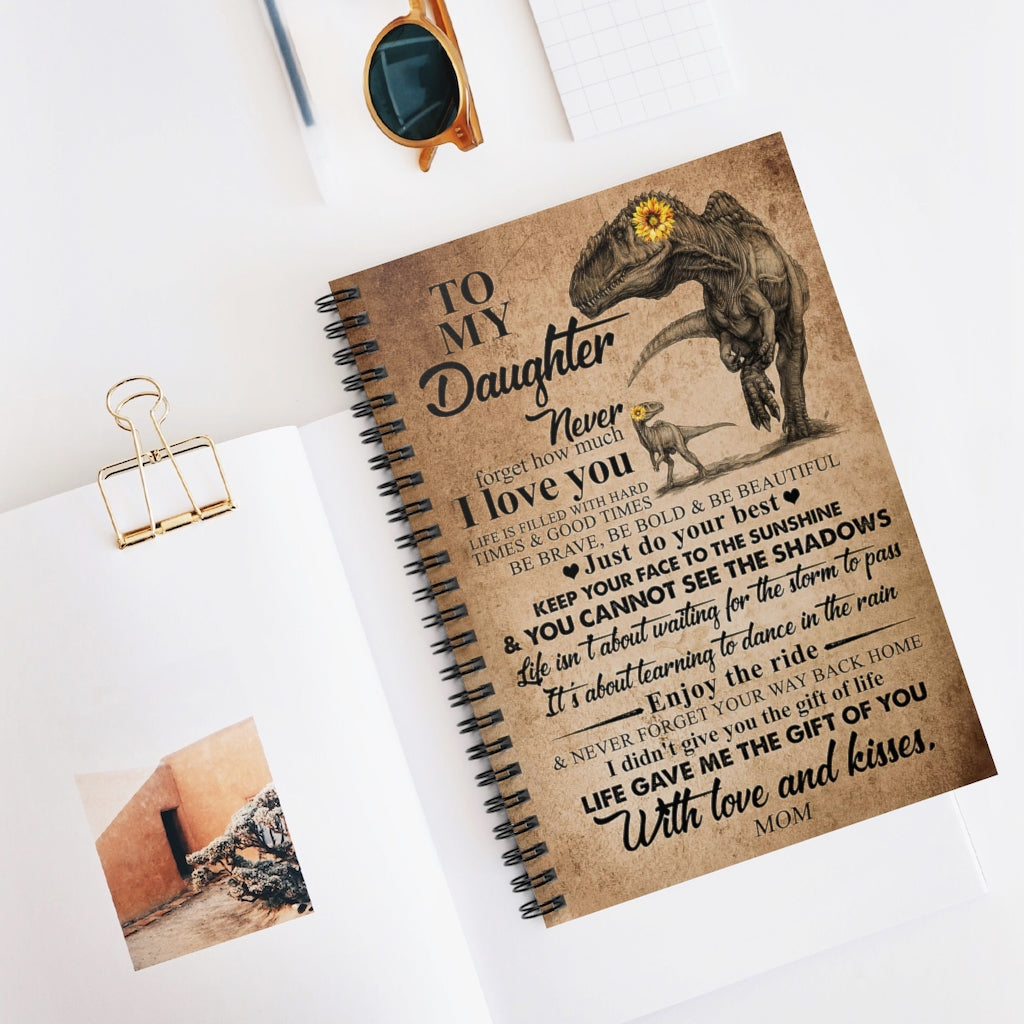 TO
MY
Daughter
Never
forget how much
I love you
LIFE IS FILLED WITH HARD
TIMES & GOOD TIMES
BE BRAVE, BE BOLD & BE BEAUTIFUL
Just do your best
KEEP YOUR FACE TO THE SUNSHINE
& YOU CANNOT SEE THE SHADOWS
Life isn't about waiting for the storm to pass
It's about learning to dance in the rain
Enjoy the ride
& NEVER FORGET YOUR WAY BACK HOME
I didn't give you the gift of life
LIFE GAVE ME THE GIFT OF YOU
With love and kisses,
MOM